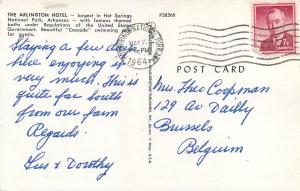 THE ARLINGTON HOTEL — largest in Hot Springs
National Park, Arkansas — with famous thermal
baths under Regulations of the United States
Government. Beautiful "Cascade" swimming
for guests.
P38566
Staying a few days
here enjoying it
very much. This is
quite far south
from our farm
Regards
Gus & Dorothy
MAY
PM
1964
POST CARD
Mrs Theo Coopman
129 Av Dailly
Brussels
Belguim